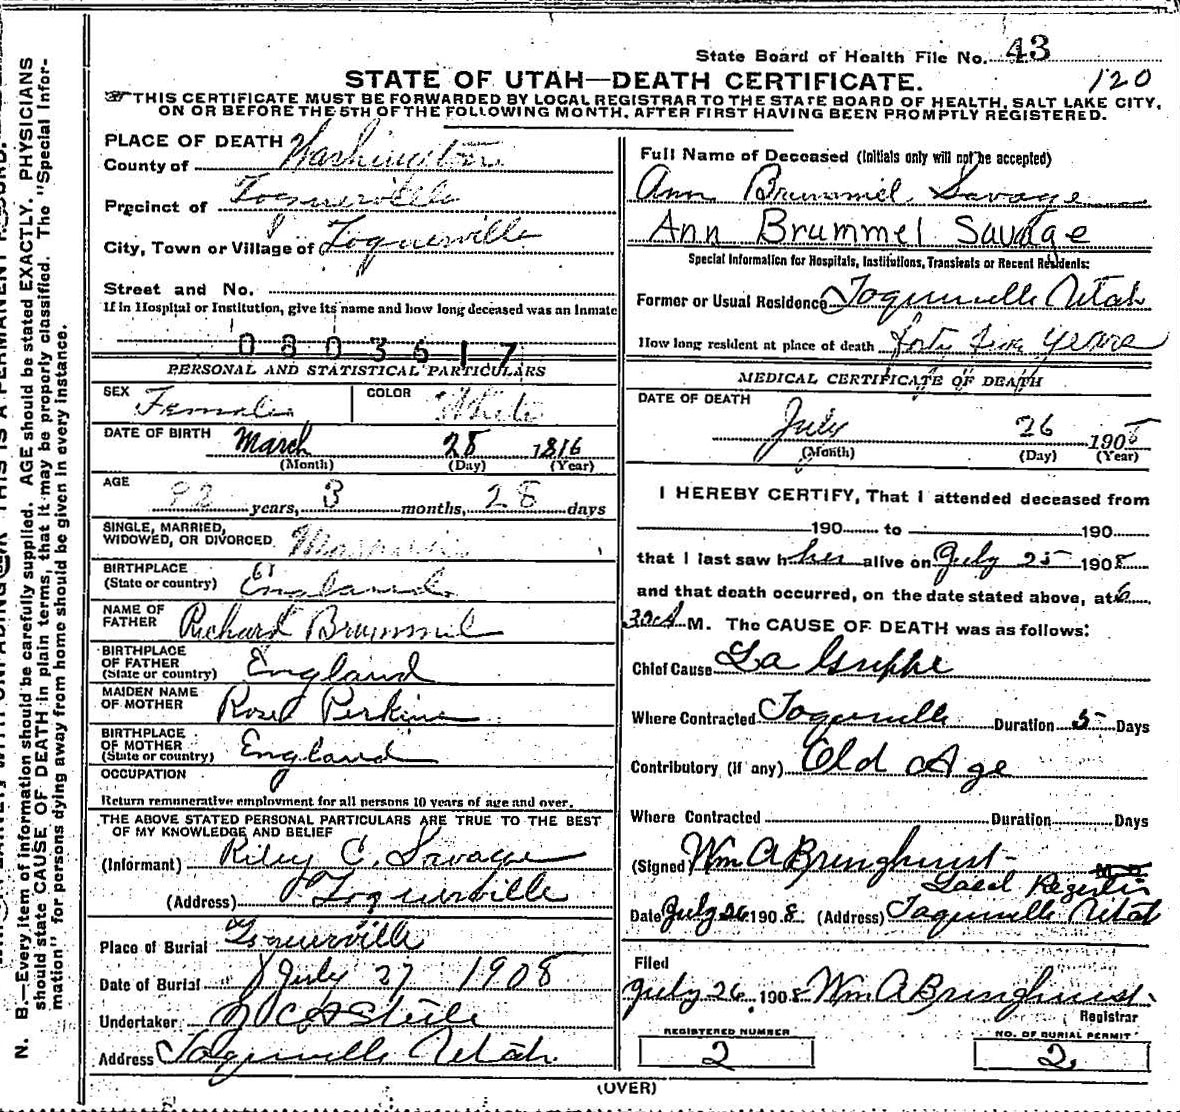 State Board of Health File No. 43
120
STATE OF UTAH—DEATH CERTIFICATE.
THIS CERTIFICATE MUST BE FORWARDED BY LOCAL REGISTRAR TO THE STATE BOARD OF HEALTH, SALT LAKE CITY,
ON OR BEFORE THE 5TH OF THE FOLLOWING MONTH, AFTER FIRST HAVING BEEN PROMPTLY REGISTERED.
PLACE OF DEATH
County of Washington
Precinct of Toquerville
City, Town or Village of Toquerville
Street and No.
If in Hospital or Institution, give its name and how long deceased was an Inmate
0803617
PERSONAL AND STATISTICAL PARTICULARS
SEX Female COLOR White
DATE OF BIRTH March 28 1816
(Month) (Day) (Year)
AGE
92 years, 3 months, 28 days
SINGLE, MARRIED,
WIDOWED, OR DIVORCED
BIRTHPLACE
(State or country) England
NAME OF
FATHER Richard Brummel
BIRTHPLACE
OF FATHER
(State or country) England
MAIDEN NAME
OF MOTHER Rose Perkins
BIRTHPLACE
OF MOTHER
(State or country) England
OCCUPATION
Return remunerative employment for all persons 10 years of age and over.
THE ABOVE STATED PERSONAL PARTICULARS ARE TRUE TO THE BEST
OF MY KNOWLEDGE AND BELIEF
(Informant) Riley C. Savage
(Address) Toquerville
Place of Burial Toquerville
Date of Burial July 27 1908
Undertaker Steile
Address Toquerville Utah.
Full Name of Deceased (Initials only will not be accepted)
Ann Brummel Savage
Ann Brummel Savage
Special Information for Hospitals, Institutions, Transients or Recent Residents:
Former or Usual Residence Toquerville Utah
How long resident at place of death forty five years
MEDICAL CERTIFICATE OF DEATH
DATE OF DEATH
July 26 1908
(Month) (Day) (Year)
I HEREBY CERTIFY, That I attended deceased from
190 to 190
that I last saw her alive on July 25 1908
and that death occurred, on the date stated above, at 6
30 A M. The CAUSE OF DEATH was as follows:
Chief Cause La Grippe
Where Contracted Toquerville Duration 5 Days
Contributory (if any) Old Age
Where Contracted Duration Days
(Signed Wm A Bringhurst
Local Register
Date July 26 1908. (Address) Toquerville Utah
Filed
July 26 1908 Wm A Bringhurst
Registrar
REGISTERED NUMBER
2
NO. OF BURIAL PERMIT
2
(OVER)
N. B.—Every item of information should be carefully supplied. AGE should be stated EXACTLY. PHYSICIANS
should state CAUSE OF DEATH in plain terms, that it may be properly classified. The "Special Infor-
mation" for persons dying away from home should be given in every instance.